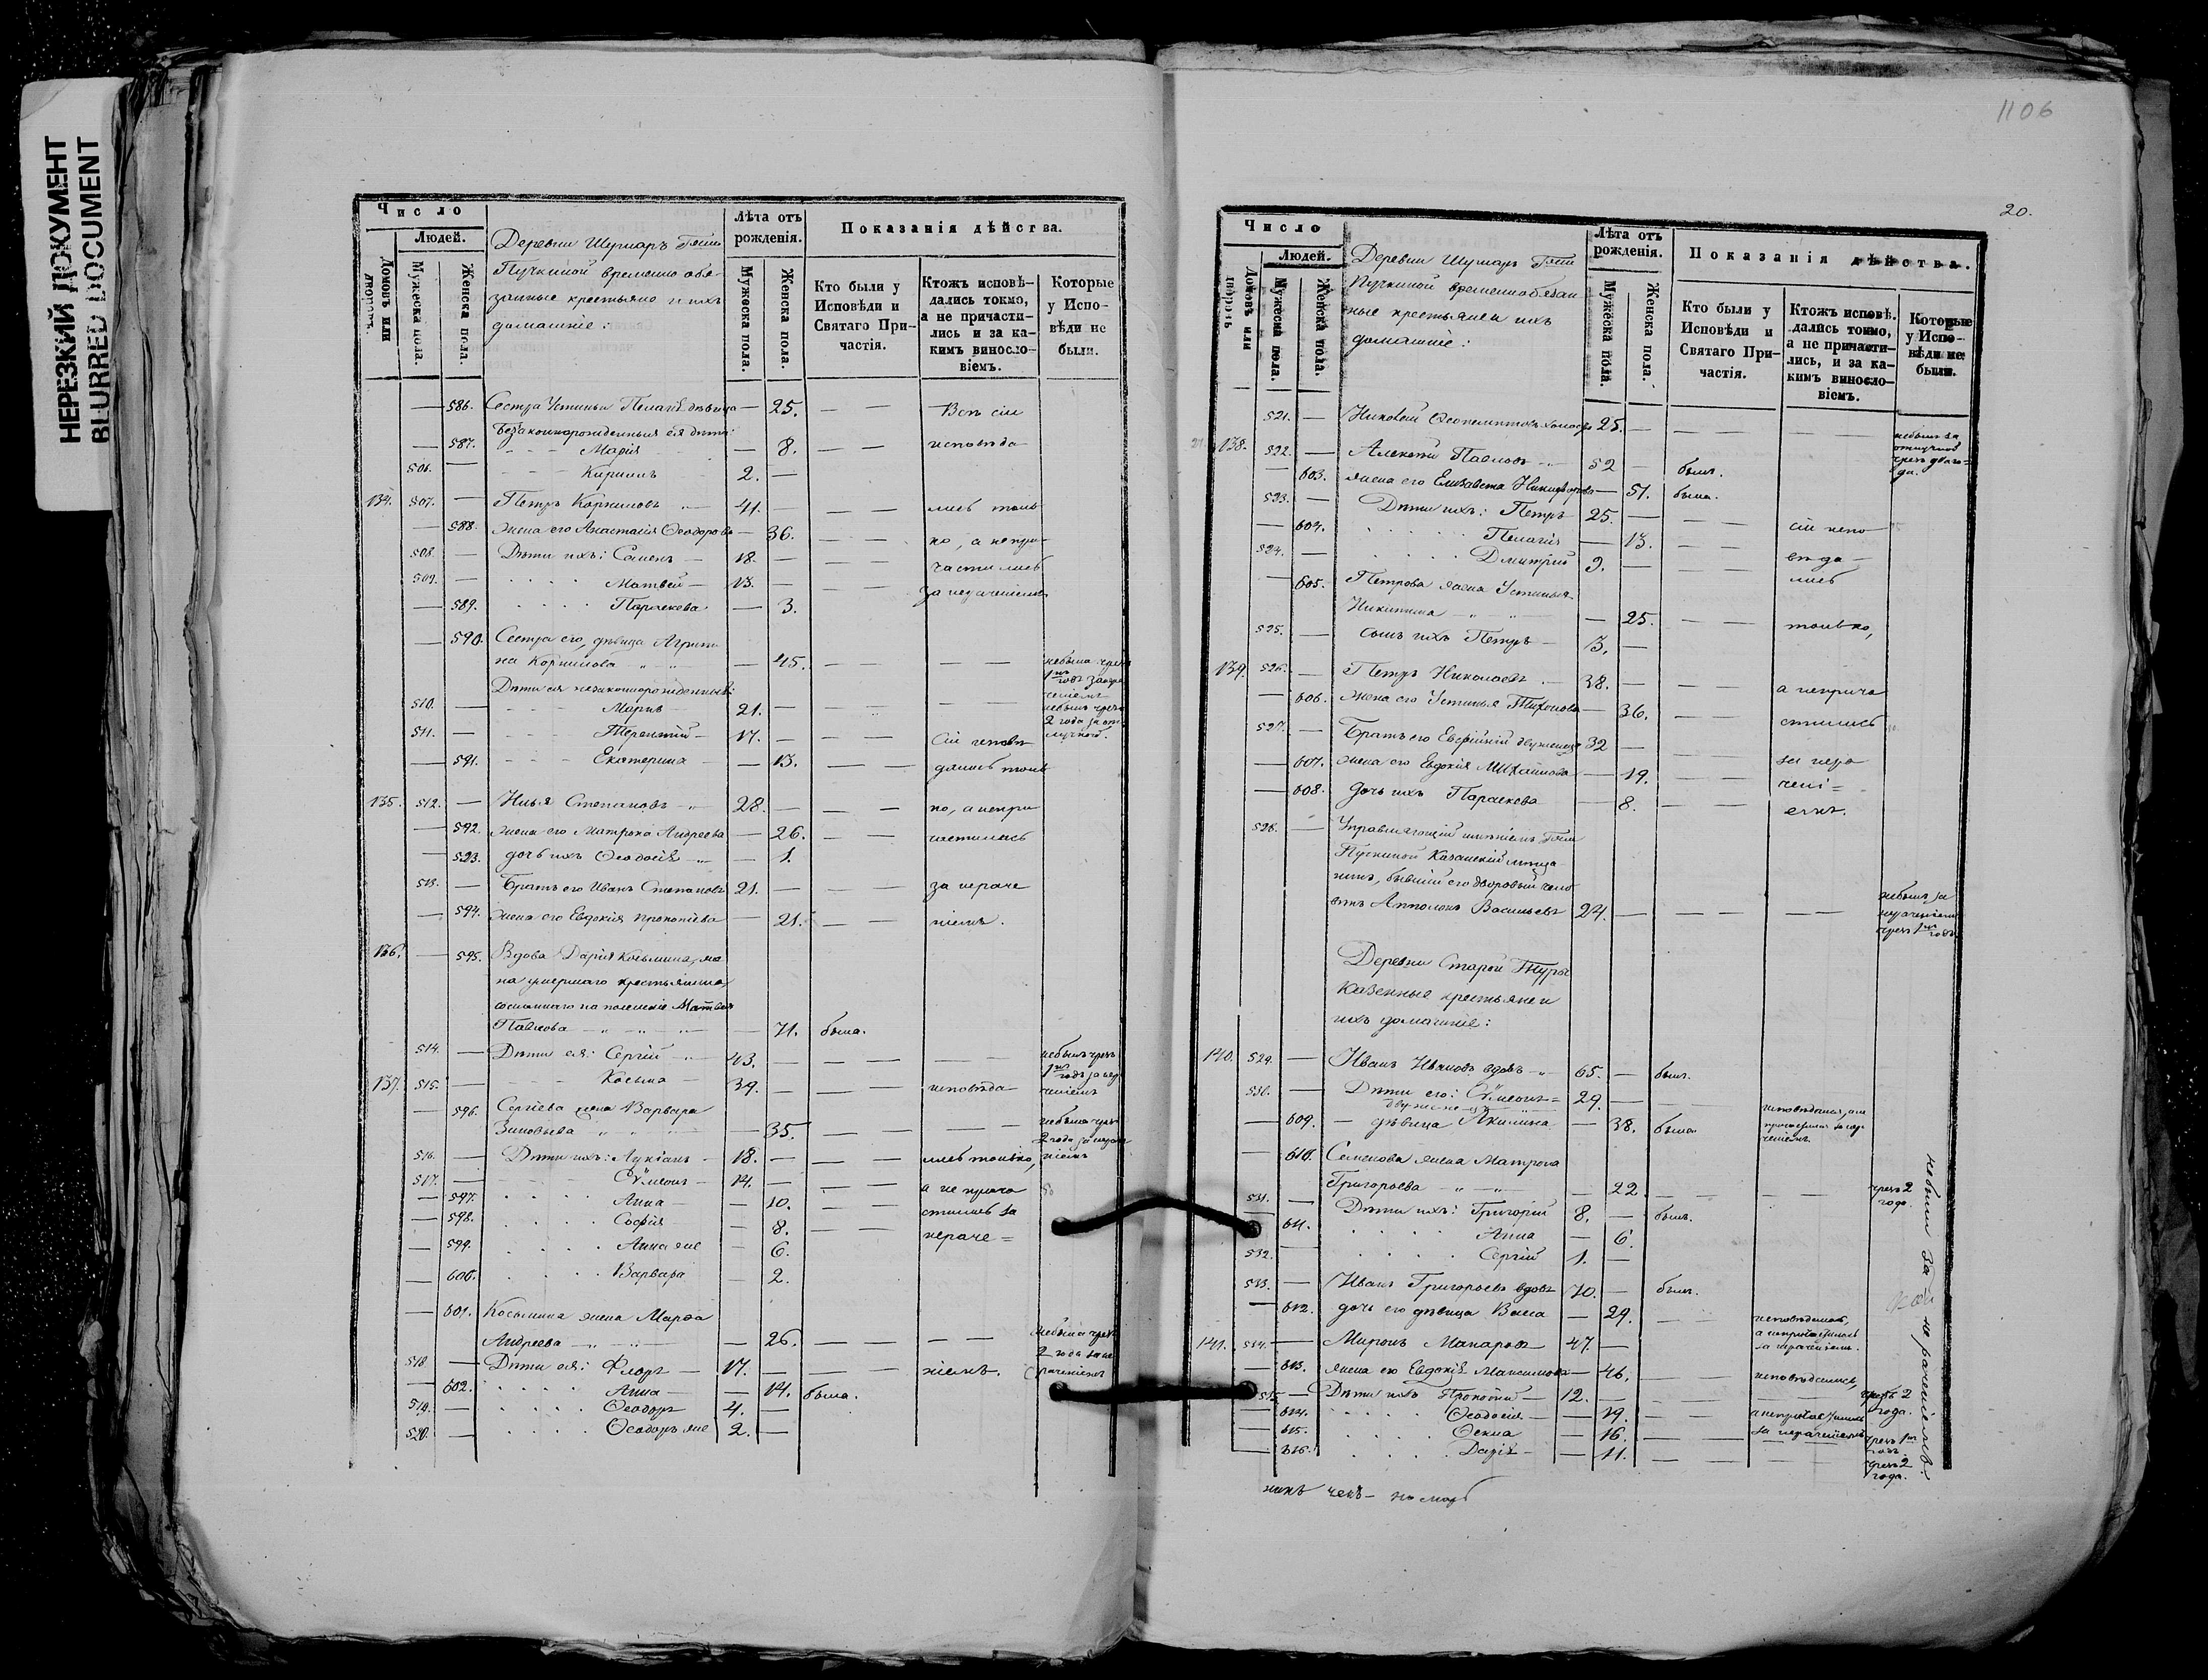 НЕРЕЗКИЙ ДОКУМЕНТ
BLURRED DOCUMENT
Число
Людей.
Домовъ или дворовъ.
Мужеска пола.
Женска пола.
Деревни Шумаръ Гжи
Пучкиной временно обя-
занные крестьяне и ихъ
домашніе:
Лѣта отъ рожденія.
Мужеска пола.
Женска пола.
Показанія дѣйства.
Кто были у Исповѣди и Святаго При-частія.
Ктожъ исповѣ-дались токмо, а не причасти-лись и за ка-кимъ винсло-віемъ.
Которые у Испо-вѣди не были.
586. Сестра Устиньи Пелагія дѣвица — 25. — — Всѣ сіи
Незаконнорожденныя ея дѣти:
587. Марія — 8. — — исповѣда
506. — Кириллъ 2. —
134. 507. — Петръ Корниловъ 41. — — — лись толь
588. жена его Анастасія Ѳеодорова — 36. — — ко, а непри-
508. — Дѣти ихъ: Семенъ — 18. — — — частились
509. — Матвей — 13. — — — за нераченіемъ
589. Параскева — 3.
590. Сестра его, дѣвица Агрипи
на Корнилова — 45. — — — — небыла чрезъ 1нъ годъ за нера ченіемъ
Дѣти ея незаконнорожденныя:
510. — Маркъ — 21. — — — — — небылъ чрезъ 2 года за от лучкой.
511. — Терентій — 17. — — — Сіи исповѣ
591. Екатерина — 13. — — дались толь
135. 512. — Илья Степановъ 28. — — — ко, а непри
592. жена его Матрона Андреева — 26. — — частились
593. дочь ихъ Ѳеодосія — 1.
513. — Братъ его Иванъ Степановъ 21. — — — за нераче
594. жена его Евдокія Прокопіева — 21. — — ніемъ.
136. — 595. Вдова Дарія Косьмина, же
на умершаго крестьянина,
сосланнаго на поселеніе Матвея
Павлова — 71. была.
514. — Дѣти ея: Сергій 43. — — — — небылъ чрезъ 1нъ годъ за нера ченіемъ
137. 515. — Косьма — 39. — — — исповѣда
596. Сергіева жена Варвара
Зиновьева — 35. — — — — небыла чрезъ 2 года за нера ченіемъ
516. — Дѣти ихъ: Лукіанъ — 18. — — — лись только,
517. — Сѵмеонъ — 14. — — — а не прича
597. Анна — 10. — — стились за
598. Софія — 8. — — нераче=
599. Анна же — 6.
600. Варвара — 2.
601. Косьмина жена Марѳа
Андреева — 26. — — — — небыла чрезъ 2 года за не раченіемъ
518. — Дѣти ея: Флоръ — 17. — — — ніемъ.
602. Анна — 14. была.
519. — Ѳеодоръ 4. —
520. — Ѳеодоръ же 2. —
1106
20.
Число
Людей.
Домовъ или дворовъ
Мужеска пола.
Женска пола.
Деревни Шумаръ Гжи
Пучкиной временнобязан
ные крестьяне и ихъ
домашніе:
Лѣта отъ рожденія.
Мужеска пола.
Женска пола.
Показанія дѣйства.
Кто были у Исповѣди и Святаго При-частія.
Ктожъ исповѣ-дались токмо, а не причасти-лись, и за ка-кимъ винсло-віемъ.
Которые у Испо-вѣди не были.
521. — 25. — — — — — небылъ за отлучкой чрезъ два го= да.
138. 522. — Алексѣй Павловъ 52 — былъ.
603. жена его Елизавета Никифорова — 51. была.
523. — Дѣти ихъ: Петръ 25. — — — сіи испо
604. Пелагія — 13. — — вѣда —
524. — Дмитрій 9. — — — лись
605. Петрова жена Устинья
Никитина — 25. — — только,
525. — сынъ ихъ Петръ — 3. —
139. 526. — Петръ Николаевъ 38. — — — а неприча
606. жена его Устинья Тихонова — 36. — — стились
527. — Братъ его Евѳимій двуженецъ 32 — — — за нера
607. жена его Евдокія Михайлова — 19. — — чені=
608. дочь ихъ Параскева — 8. — — емъ.
528. — Управляющій имѣніемъ Гжи
Пучкиной Казанскій мѣща
нинъ, бывшій его дворовый чело
вѣкъ Апполонъ Васильевъ 24. — — — — — небылъ за нераченіемъ чрезъ 1нъ годъ.
Деревни Старой Туры
казенные крестьяне и
ихъ домашніе:
140. 529. — Иванъ Ивановъ вдовъ 65. — былъ.
530. — Дѣти его: Сѵмеонъ= 29. — — — исповѣдался, а не причастился за нера ченіемъ.
двуженецъ
609. — дѣвица Акилина — 38. была
610. Семенова жена Матрона
Григорьева — 22. — — — — чрезъ 2 года.
531. — Дѣти ихъ: Григорій 8. — былъ.
611. Анна — 6.
532. — Сергій 1. —
533. — Иванъ Григорьевъ вдовъ 70. — былъ.
612. дочь его дѣвица Васса — 29. — — исповѣдалась, а непричастилась за нераченіемъ.
141. 534. — Миронъ Макаровъ 47. —
613. жена его Евдокія Максимова — 46. — — исповѣдались,
535. — Дѣти ихъ Прокопій — 12. — — — — — чрезъ 2 года.
614. Ѳеодосія — — 19. — — а непричастились
615. Ѳекла — 16. — — за нераченіемъ чрезъ 1нъ годъ.
616. Дарія — 11. — — — — чрезъ 2 года.
небыли за нераченіемъ.